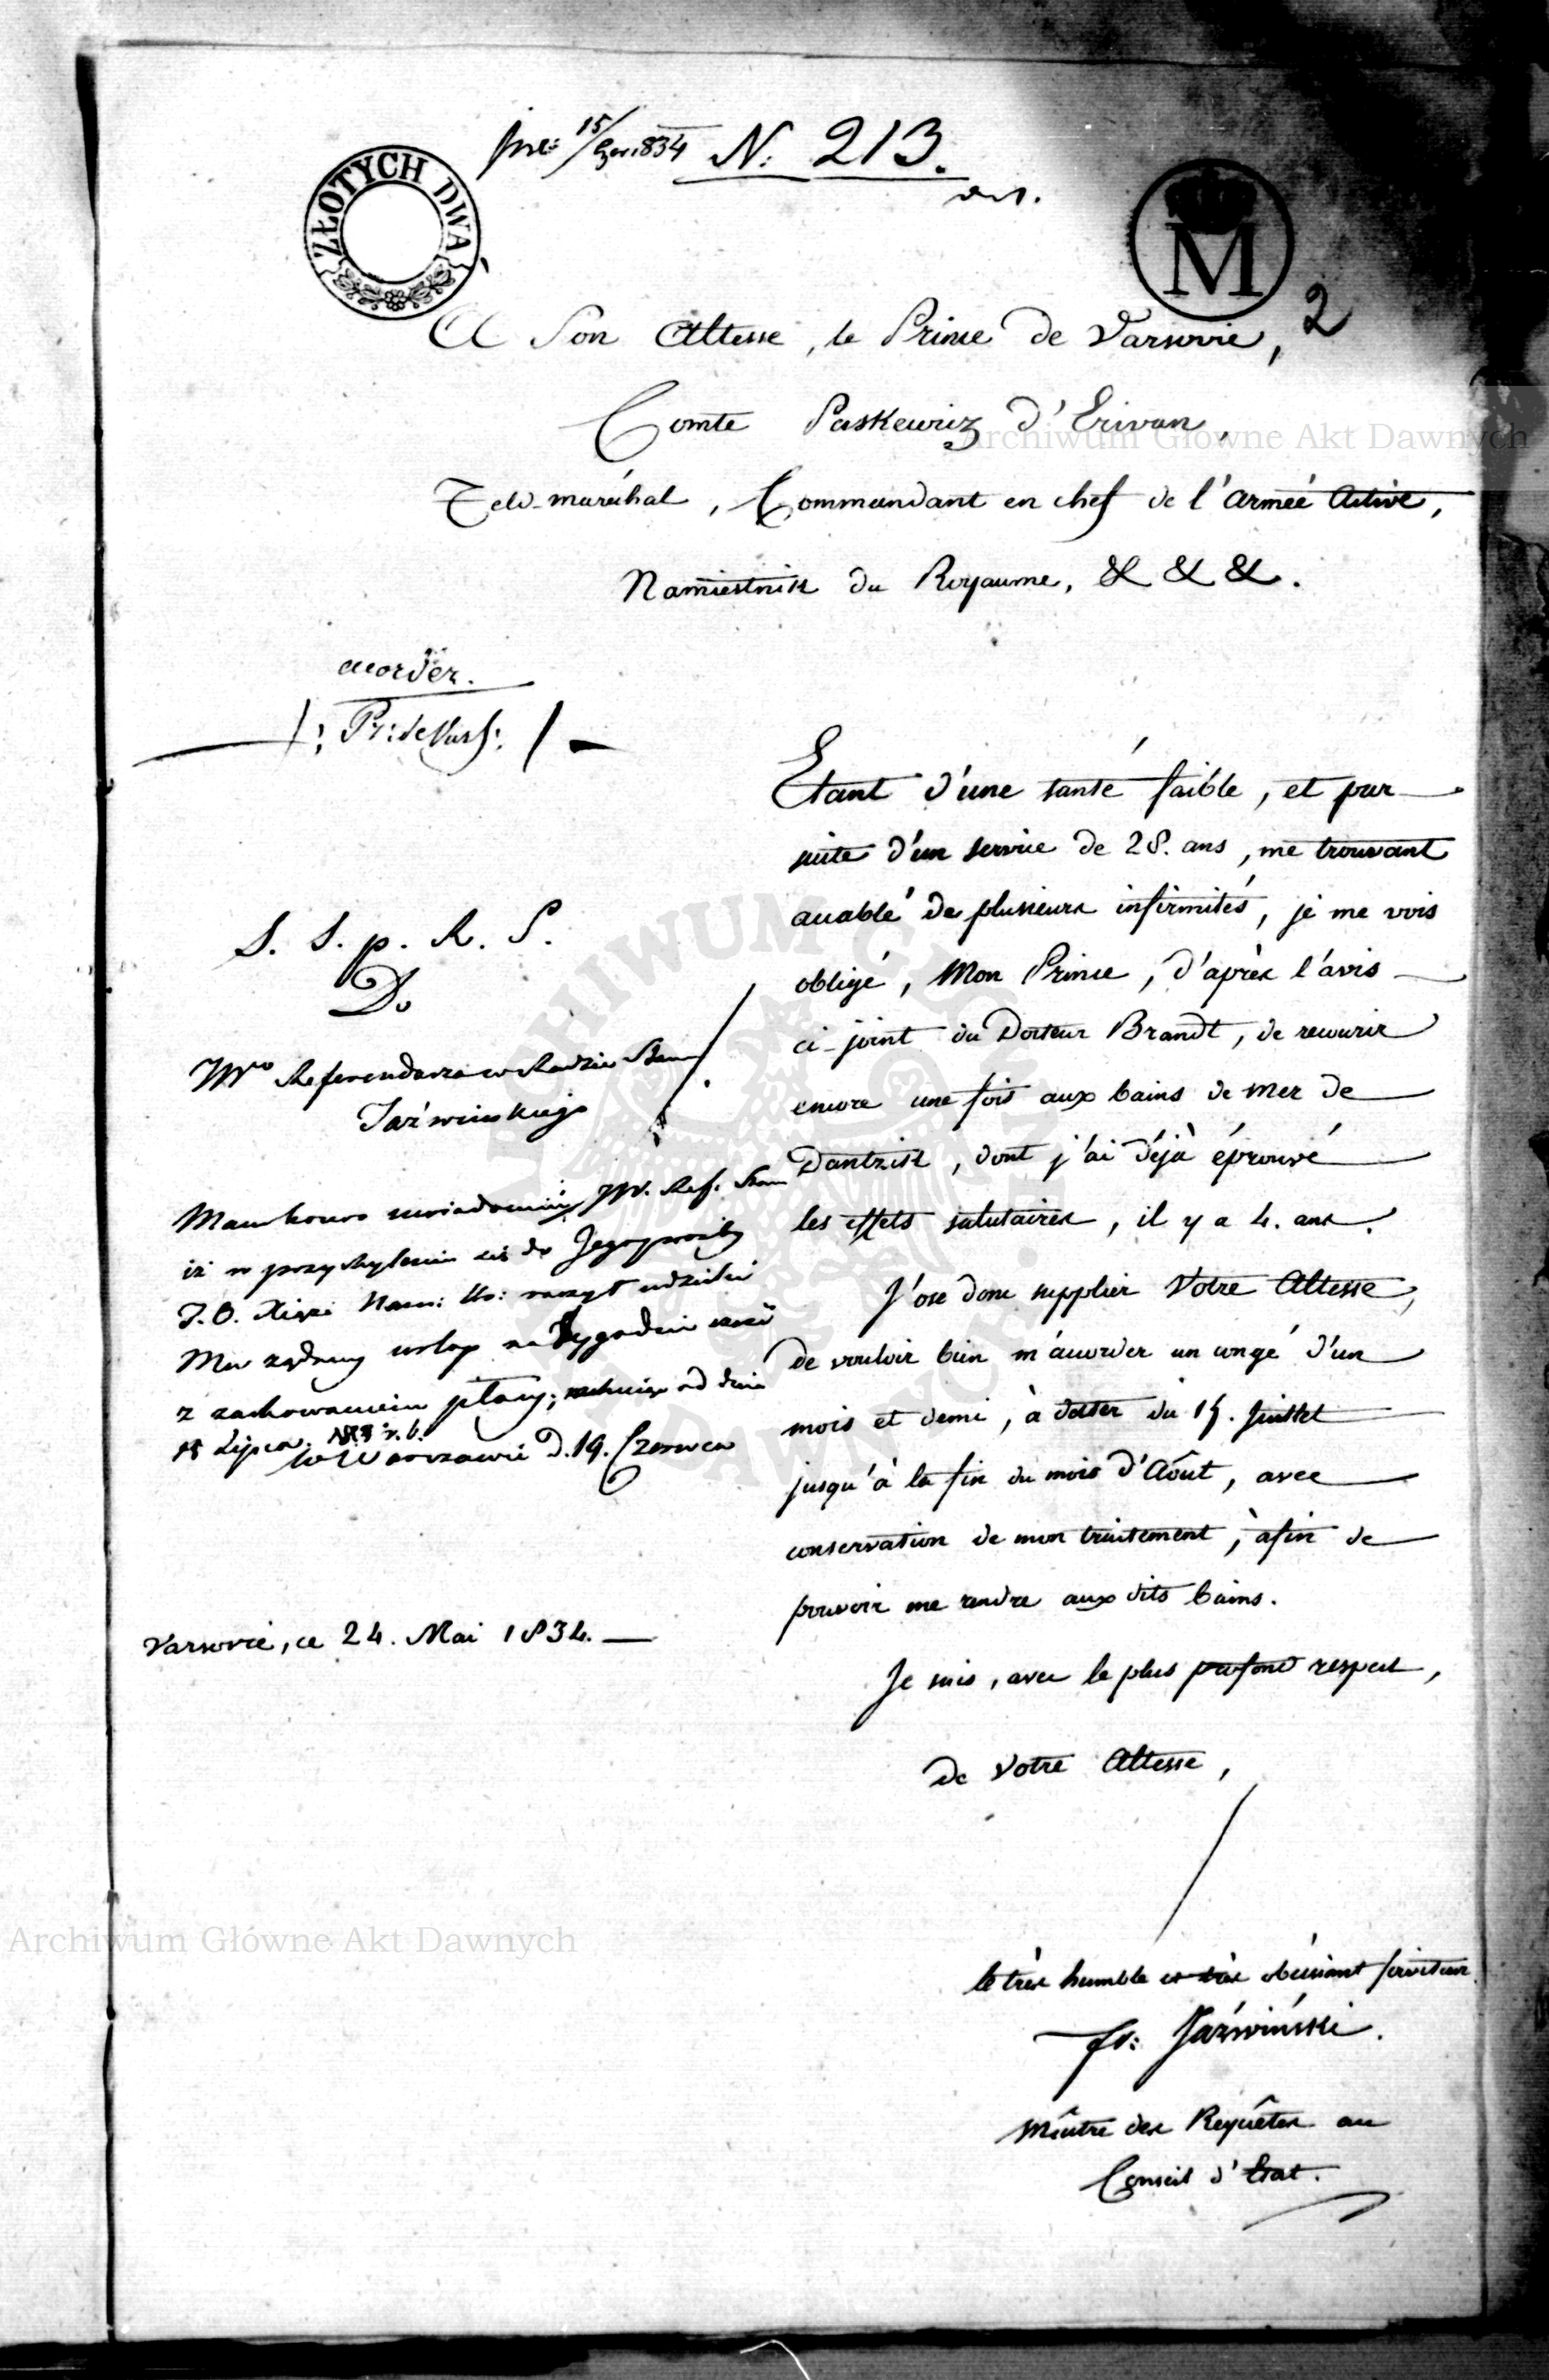 N: 213.
ZŁOTYCH DWA
M
2
A Son Altesse, le Prince de Varsovie,
Comte Paskewicz d'Erivan,
Feld-maréchal, Commandant en chef de l'Armée Active,
Namiestnik du Royaume, & & &.
accorder.
/: Pr: de Vars: /
Etant d'une santé faible, et par
suite d'un service de 28. ans, me trouvant
accablé de plusieurs infirmités, je me vois
obligé, Mon Prince, d'après l'avis
ci-joint du Docteur Brandt, de recourir
encore une fois aux bains de mer de
Dantzik, dont j'ai déjà éprouvé
les effets salutaires, il y a 4. ans.
J'ose donc supplier Votre Altesse,
de vouloir bien m'accorder un congé d'un
mois et demi, à dater du 15. Juillet
jusqu'à la fin du mois d'Août, avec
conservation de mon traitement, afin de
pouvoir me rendre aux dits bains.
Je suis, avec le plus profond respect,
de Votre Altesse,
le très humble et très obéissant serviteur
fr: Jaźwiński.
Maître des Requêtes au
Conseil d'Etat.
S. S. p. R. S.
Do
JWo Referendarza w Radzie Stanu
Jaźwińskiego
Mam honor uwiadomić JW. Ref. Stanu
iż w przychyleniu się do Jego prośby
J. O. Xiąże Nam: Kr: raczył udzielić
Mu żądany urlop na tygodni sześć
z zachowaniem płacy, od dnia
15 Lipca r. b.
w Warszawie D. 19. Czerwca
Varsovie, ce 24. Mai 1834.
Archiwum Główne Akt Dawnych
Archiwum Główne Akt Dawnych